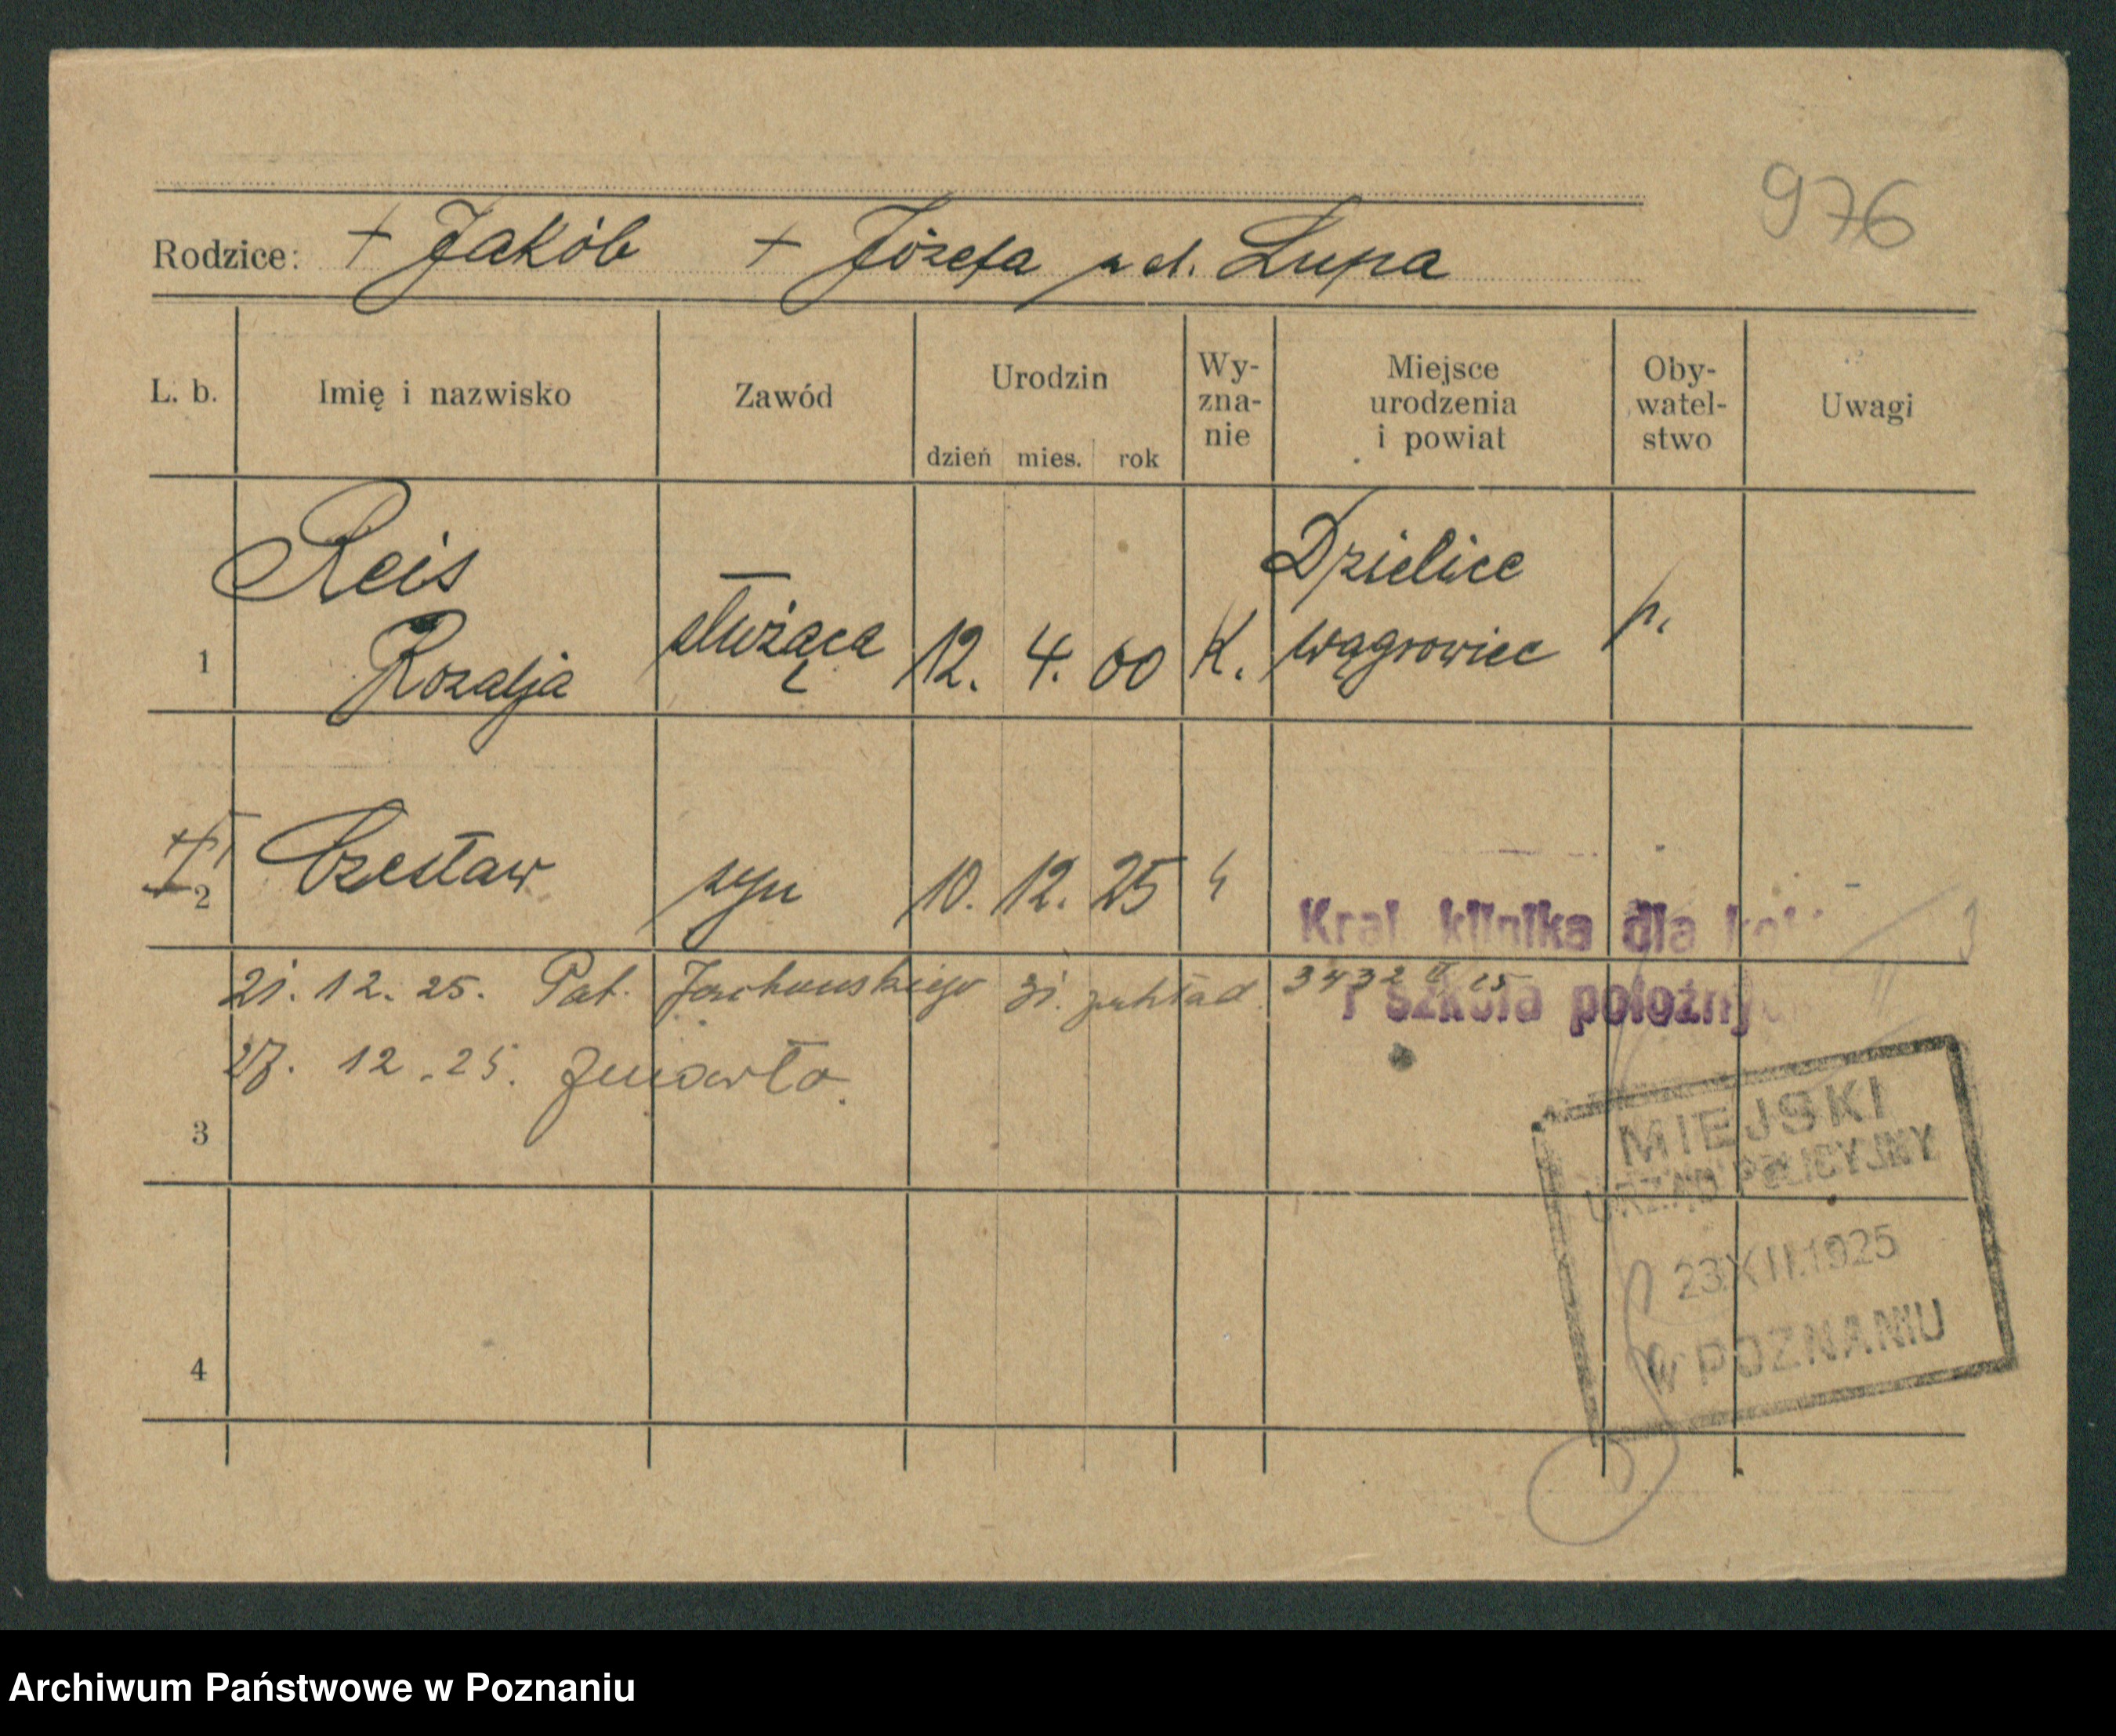 976
Rodzice: + Jakób + Józefa zd. Lupa
L. b. Imię i nazwisko Zawód Urodzin dzień mies. rok Wy-zna-nie Miejsce urodzenia i powiat Oby-watel-stwo Uwagi
Reis Dzielice
1 Rozalja służąca 12. 4. 00 K. Wągrowiec p.
2 Czesław syn 10. 12. 25
Kraj. klinika dla
21. 12. 25. Pat. 31. 3432
i szkoła położnych
27. 12. 25. Zmarło.
3
MIEJSKI
URZĄD POLICYJNY
23 XII. 1925
W POZNANIU
4
Archiwum Państwowe w Poznaniu